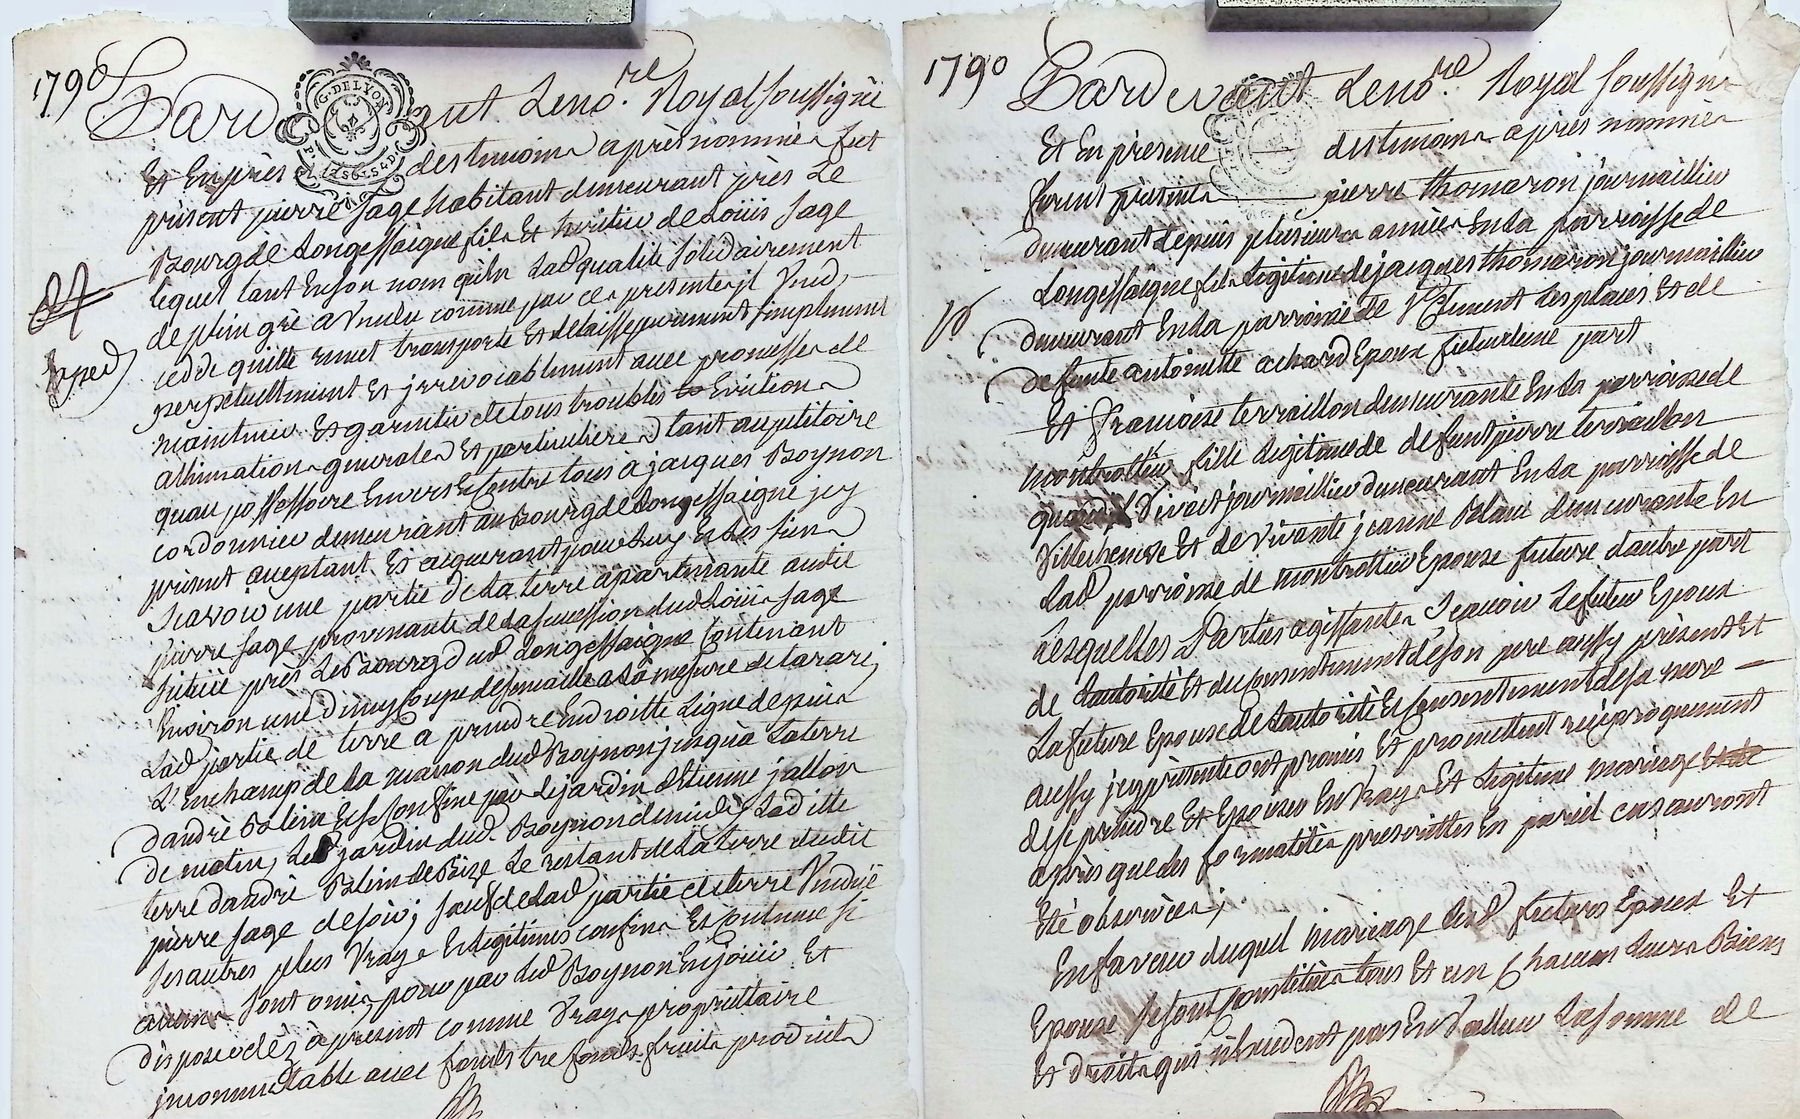 1790
Pardevant Le no.re Royal soussigné
G. DE LYON
Et En présence des temoins après nommés fut
présent pierre sage habitant demeurant près Le
Bourg de Longessaigne fils Et heritier de Loüis sage
lequel tant En son nom qu'En Lad qualité solidairement
de plein gré a vendu comme par ces presentes il vend,
cedde quitte remet transporte Et delaisse purement simplement
Exped
perpetuellement Et irrevocablement avec promesse de
maintenir Et garentir de tous troubles Evictions
allienations generales Et particulieres tant au petitoire
quau possessoire Envers Et Contre tous à jacques Boynon
cordonnier demeurant au Bourg de Longessaigne icy
présent acceptant Et acquerant pour Luy Et Les siens
Scavoir une partie de La terre apartenante audit
Pierre sage provenante de La succession dud Loüis sage
scituée près Le Bourg dud Longessaigne Contenant
Environ une demy Coupe de semaille a La mesure de tarare;
Lad partie de terre a prendre En droitte Ligne depuis
L'Enchamp de La maison dud Boynon jusqu'à La terre
dandré Blein Et se Confine par Le jardin d'Etienne jallon
de matin, Le jardin dud. Boynon de midy Laditte
terre dandré Blein de Bize Le restant de La terre dudit
pierre sage de soir; sauf de Lad partie de terre vendue
ses autres plus vrays Et Legitimes confins Et Coutume si
aucuns sont omis, pour par Led Boynon En joüir Et
disposer dèz à present comme vray propriettaire
incommutable avec fonds tres fonds fruits produits
1790
Pardevant Le no.re Royal soussigné
Et En présence des temoins après nommés
furent présents pierre thomaron journaillier
demeurant depuis plusieurs années En La parroisse de
Longessaigne fils Legitime de jacques thomaron journaillier
demeurant En La parroisse de St Clement Les places Et de
defunte antoinette achard Epoux futur dune part
Et françoise terraillon demeurante En La parroisse de
montrottier fille Legitime de defunt pierre terraillon
quand Vivoit journaillier demeurant En La parroisse de
Villechenève Et de Vivante jeanne Blanc demeurante En
Lad parroisse de montrottier Epouse future dautre part
Lesquelles Parties agissantes Scavoir Le futur Epoux
de Lautorité Et du Consentement de son pere aussy présent Et
La future Epouse de Lautorité Et Consentement de sa mere
aussy icy présente ont promis Et promettent réciproquement
de se prendre Et Epouser En Vray Et Legitime mariage Et de
après que les formalités prescrittes En pareil cas auront
Eté observées;
En faveur duquel mariage Lesd futurs Epoux Et
Epouse se sont Constitués tous Et un Chacun Leurs Biens
Et droits qui n'Excedent pas En Valleur La somme de